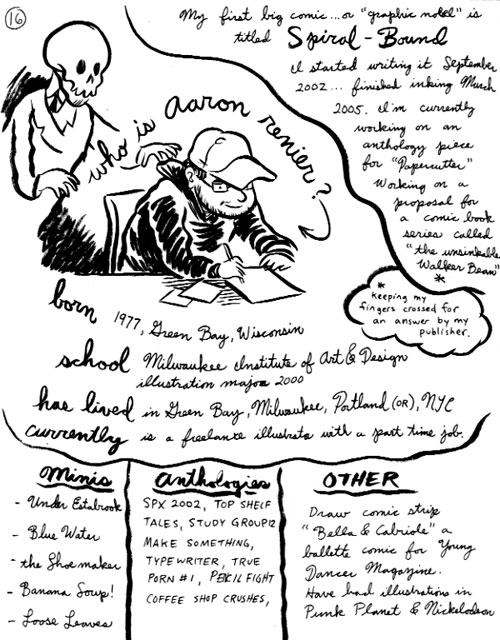 16
My first big comic... or "graphic novel" is
titled Spiral-Bound
I started writing it September
2002... finished inking March
2005. I'm currently
working on an
anthology piece
for "Papercutter"
Working on a
proposal for
a comic book
series called
"the unsinkable
Walker Bean"
*
* keeping my
fingers crossed for
an answer by my
publisher.
who is aaron renier?
born 1977, Green Bay, Wisconsin
school Milwaukee Institute of Art & Design
illustration major 2000
has lived in Green Bay, Milwaukee, Portland (OR), NYC
currently is a freelance illustrator with a part time job.
Minis
- Under Estabrook
- Blue Water
- the Shoemaker
- Banana Soup!
- Loose Leaves
Anthologies
SPX 2002, TOP SHELF
TALES, STUDY GROUP12
MAKE SOMETHING,
TYPEWRITER, TRUE
PORN #1, PENCIL FIGHT
COFFEE SHOP CRUSHES,
OTHER
Draw comic strip
"Bella & Cabriole" a
ballette comic for Young
Dancer Magazine.
Have had illustrations in
Punk Planet & Nickelodeon